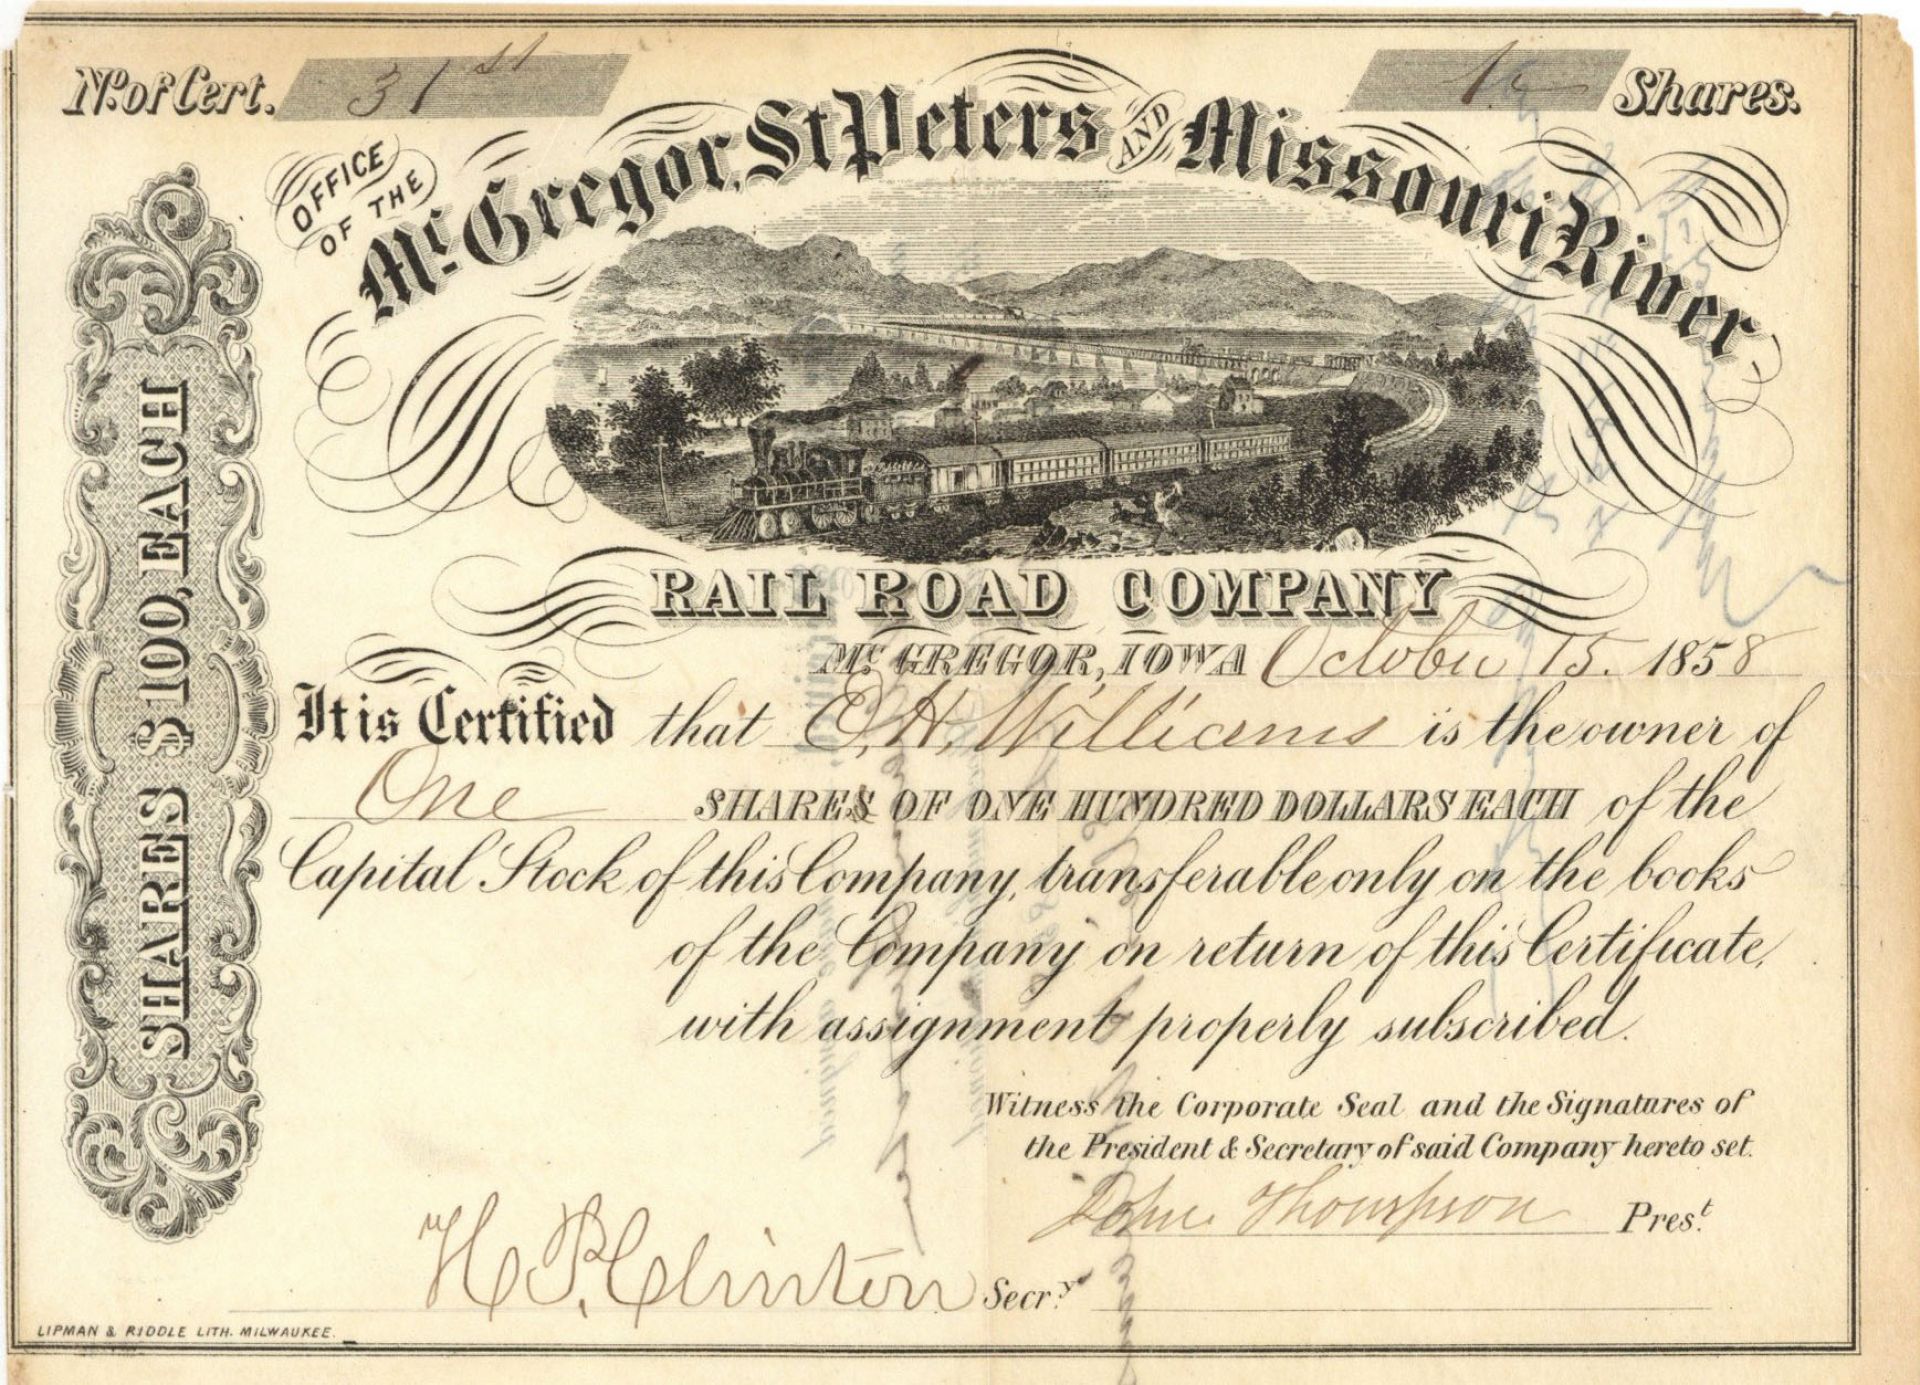 No. of Cert. 31st
1 Shares.
OFFICE OF THE
Mc. Gregor, St Peters AND Missouri River
RAIL ROAD COMPANY
Mc GREGOR, IOWA October 15. 1858
It is Certified that O. H. Williams is the owner of
One SHARES OF ONE HUNDRED DOLLARS EACH of the
Capital Stock of this Company, transferable only on the books
of the Company on return of this Certificate,
with assignment properly subscribed.
Witness the Corporate Seal and the Signatures of
the President & Secretary of said Company hereto set.
John Thompson Prest.
H. P. Clinton Secry.
SHARES $100, EACH
LIPMAN & RIDDLE LITH. MILWAUKEE.